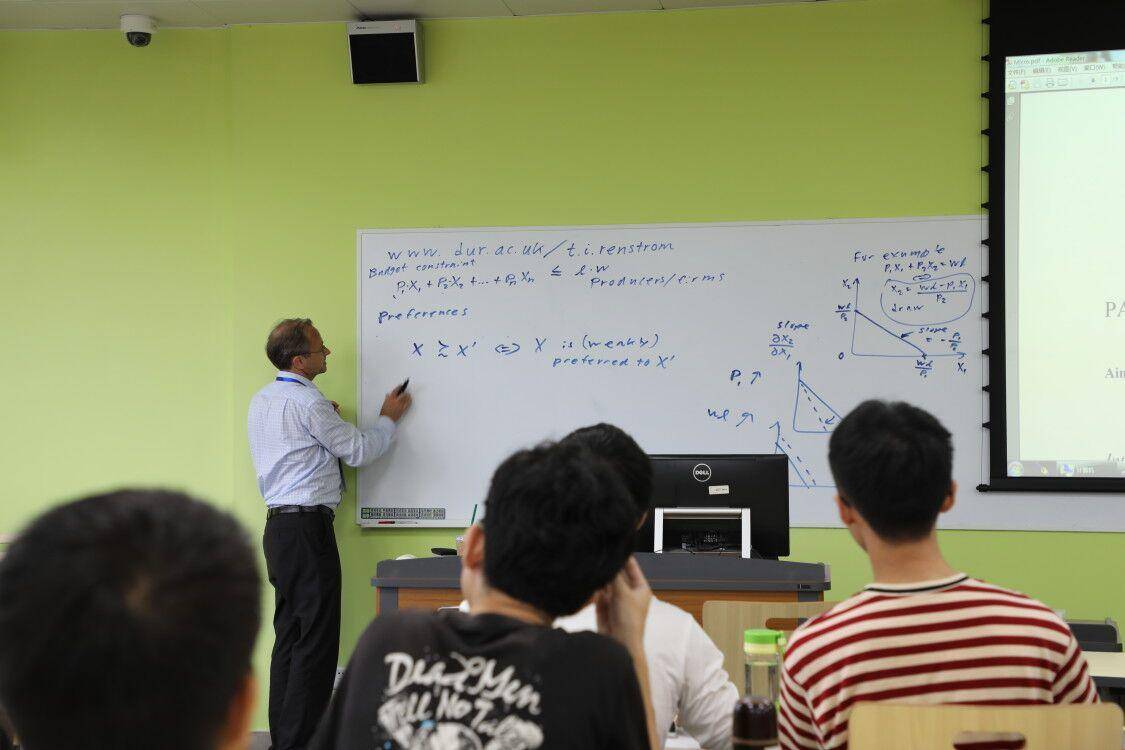 www.dur.ac.uk/t.i.renstrom
Budget constraint
P₁·X₁ + P₂·X₂ + ... + PₙXₙ ≤ l·w
Producers/firms
Preferences
X ≿ X' ⇔ X is (weakly)
preferred to X'
For example
P₁X₁ + P₂X₂ = wl
⇔
X₂ = wl - P₁X₁ / P₂
draw
X₂
wl/P₂
slope = - P₁/P₂
0
wl/P₁
X₁
slope
∂X₂/∂X₁
P₁ ↗
wl ↗
Micro.pdf - Adobe Reader
文件(F) 编辑(E) 视图(V) 窗口(W)
PA
DELL
Dead Men